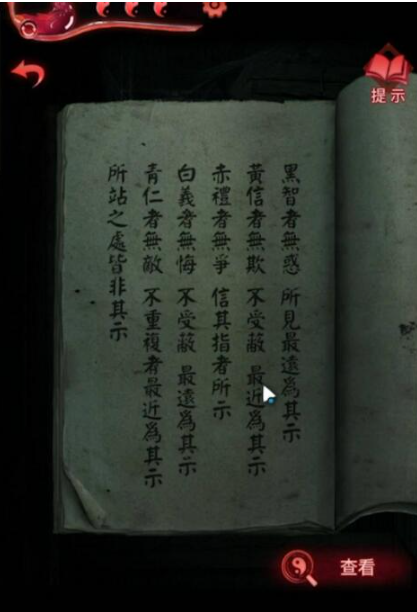 提示
黑智者無惑 所見最遠為其示
黃信者無欺 不受蔽 最近為其示
赤禮者無爭 信其指者所示
白義者無悔 不受蔽 最遠為其示
青仁者無敵 不重複者最近為其示
所站之處皆非其示
查看